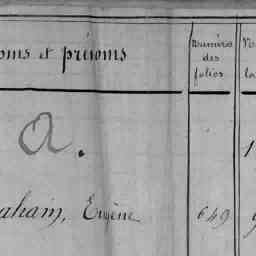 et prénoms
Numéros
des
folios
a.
Eugène
649